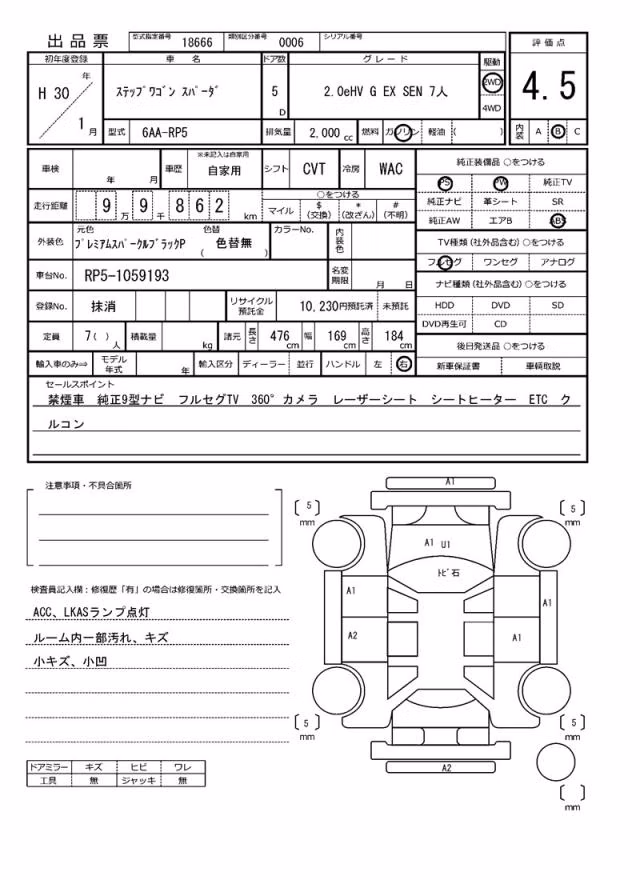 出品票
型式指定番号 18666 類別区分番号 0006 シリアル番号
初年度登録 車名 ドア数 グレード 駆動 評価点
H 30 年 1 月 ｽﾃｯﾌﾟﾜｺﾞﾝ ｽﾊﾟｰﾀﾞ 5 D 2.0eHV G EX SEN 7人 2WD 4WD 4.5
型式 6AA-RP5 排気量 2,000 cc 燃料 ガソリン 軽油 ( ) 内装 A B C
車検 年 月 車歴 ※未記入は自家用 自家用 シフト CVT 冷房 WAC 純正装備品 ○をつける
PS PW 純正TV
走行距離 9 万 9 千 8 6 2 km ○をつける マイル $ (交換) * (改ざん) # (不明) 純正ナビ 革シート SR
純正AW エアB ABS
外装色 元色 ﾌﾟﾚﾐｱﾑｽﾊﾟｰｸﾙﾌﾞﾗｯｸP 色替 ( 色替無 ) カラーNo. 内装色 TV種類(社外品含む) ○をつける
フルセグ ワンセグ アナログ
車台No. RP5-1059193 名変期限 月 日 ナビ種類(社外品含む) ○をつける
登録No. 抹消 リサイクル預託金 10,230円預託済 未預託 HDD DVD SD
DVD再生可 CD
定員 7( ) 人 積載量 kg 諸元 長さ 476 cm 幅 169 cm 高さ 184 cm 後日発送品 ○をつける
輸入車のみ⇒ モデル年式 年 輸入区分 ディーラー 並行 ハンドル 左 右 新車保証書 車輌取説
セールスポイント
禁煙車 純正9型ナビ フルセグTV 360°カメラ レーザーシート シートヒーター ETC ク
ルコン
注意事項・不具合箇所
検査員記入欄：修復歴「有」の場合は修復箇所・交換箇所を記入
ACC、LKASランプ点灯
ルーム内一部汚れ、キズ
小キズ、小凹
ドアミラー キズ ヒビ ワレ
工具 無 ジャッキ 無
A1
5 mm
5 mm
A1 U1
ﾄﾋﾞ石
A1
A1
A2
A1
5 mm
5 mm
A2
mm